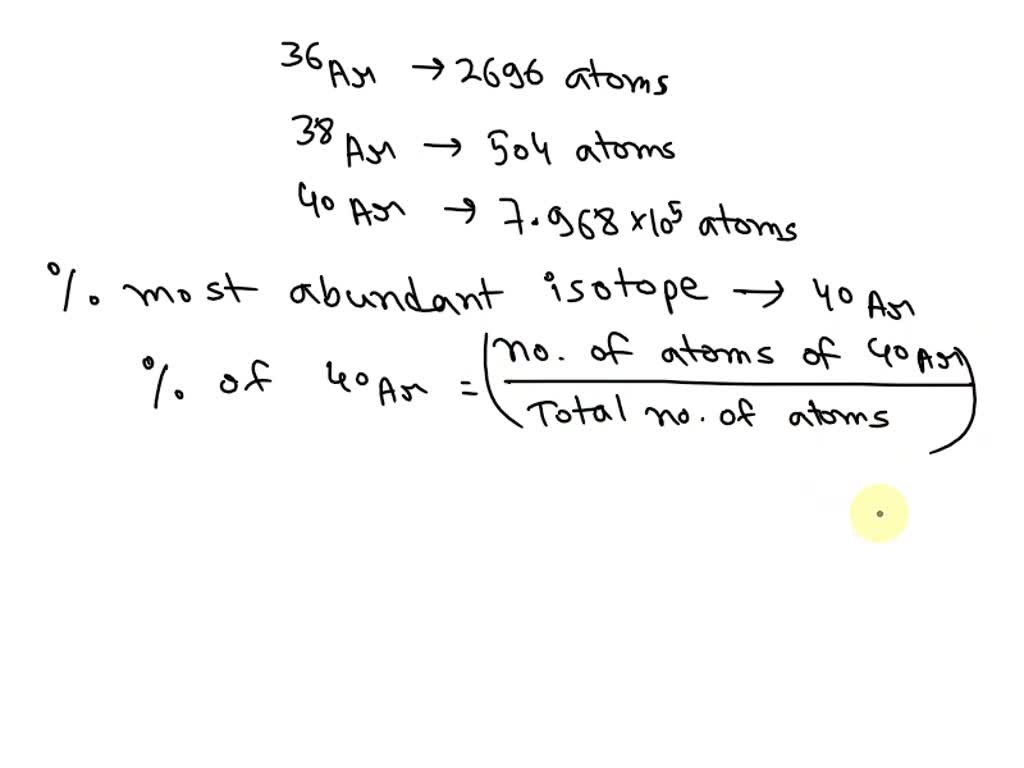 ³⁶Ar → 2696 atoms
³⁸Ar → 504 atoms
⁴⁰Ar → 7.968×10⁵ atoms
% most abundant isotope → ⁴⁰Ar
% of ⁴⁰Ar = (no. of atoms of ⁴⁰Ar
Total no. of atoms)